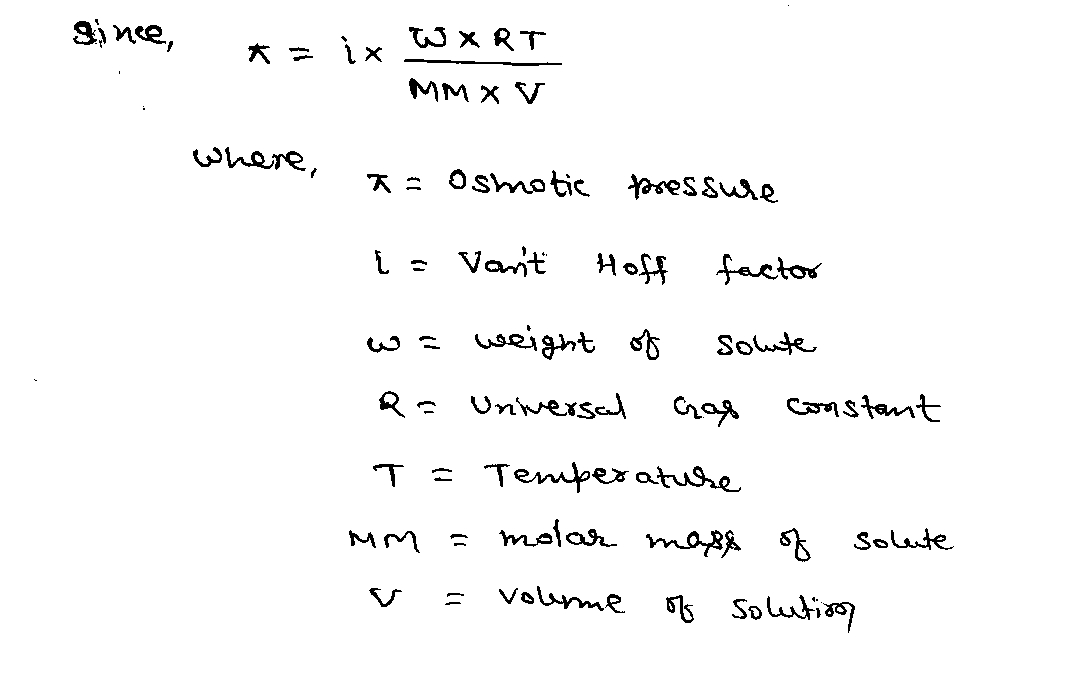 Since, π = i × W × RT / MM × V
where,
π = Osmotic pressure
i = Van't Hoff factor
w = weight of solute
R = Universal Gas constant
T = Temperature
MM = molar mass of solute
V = volume of solution